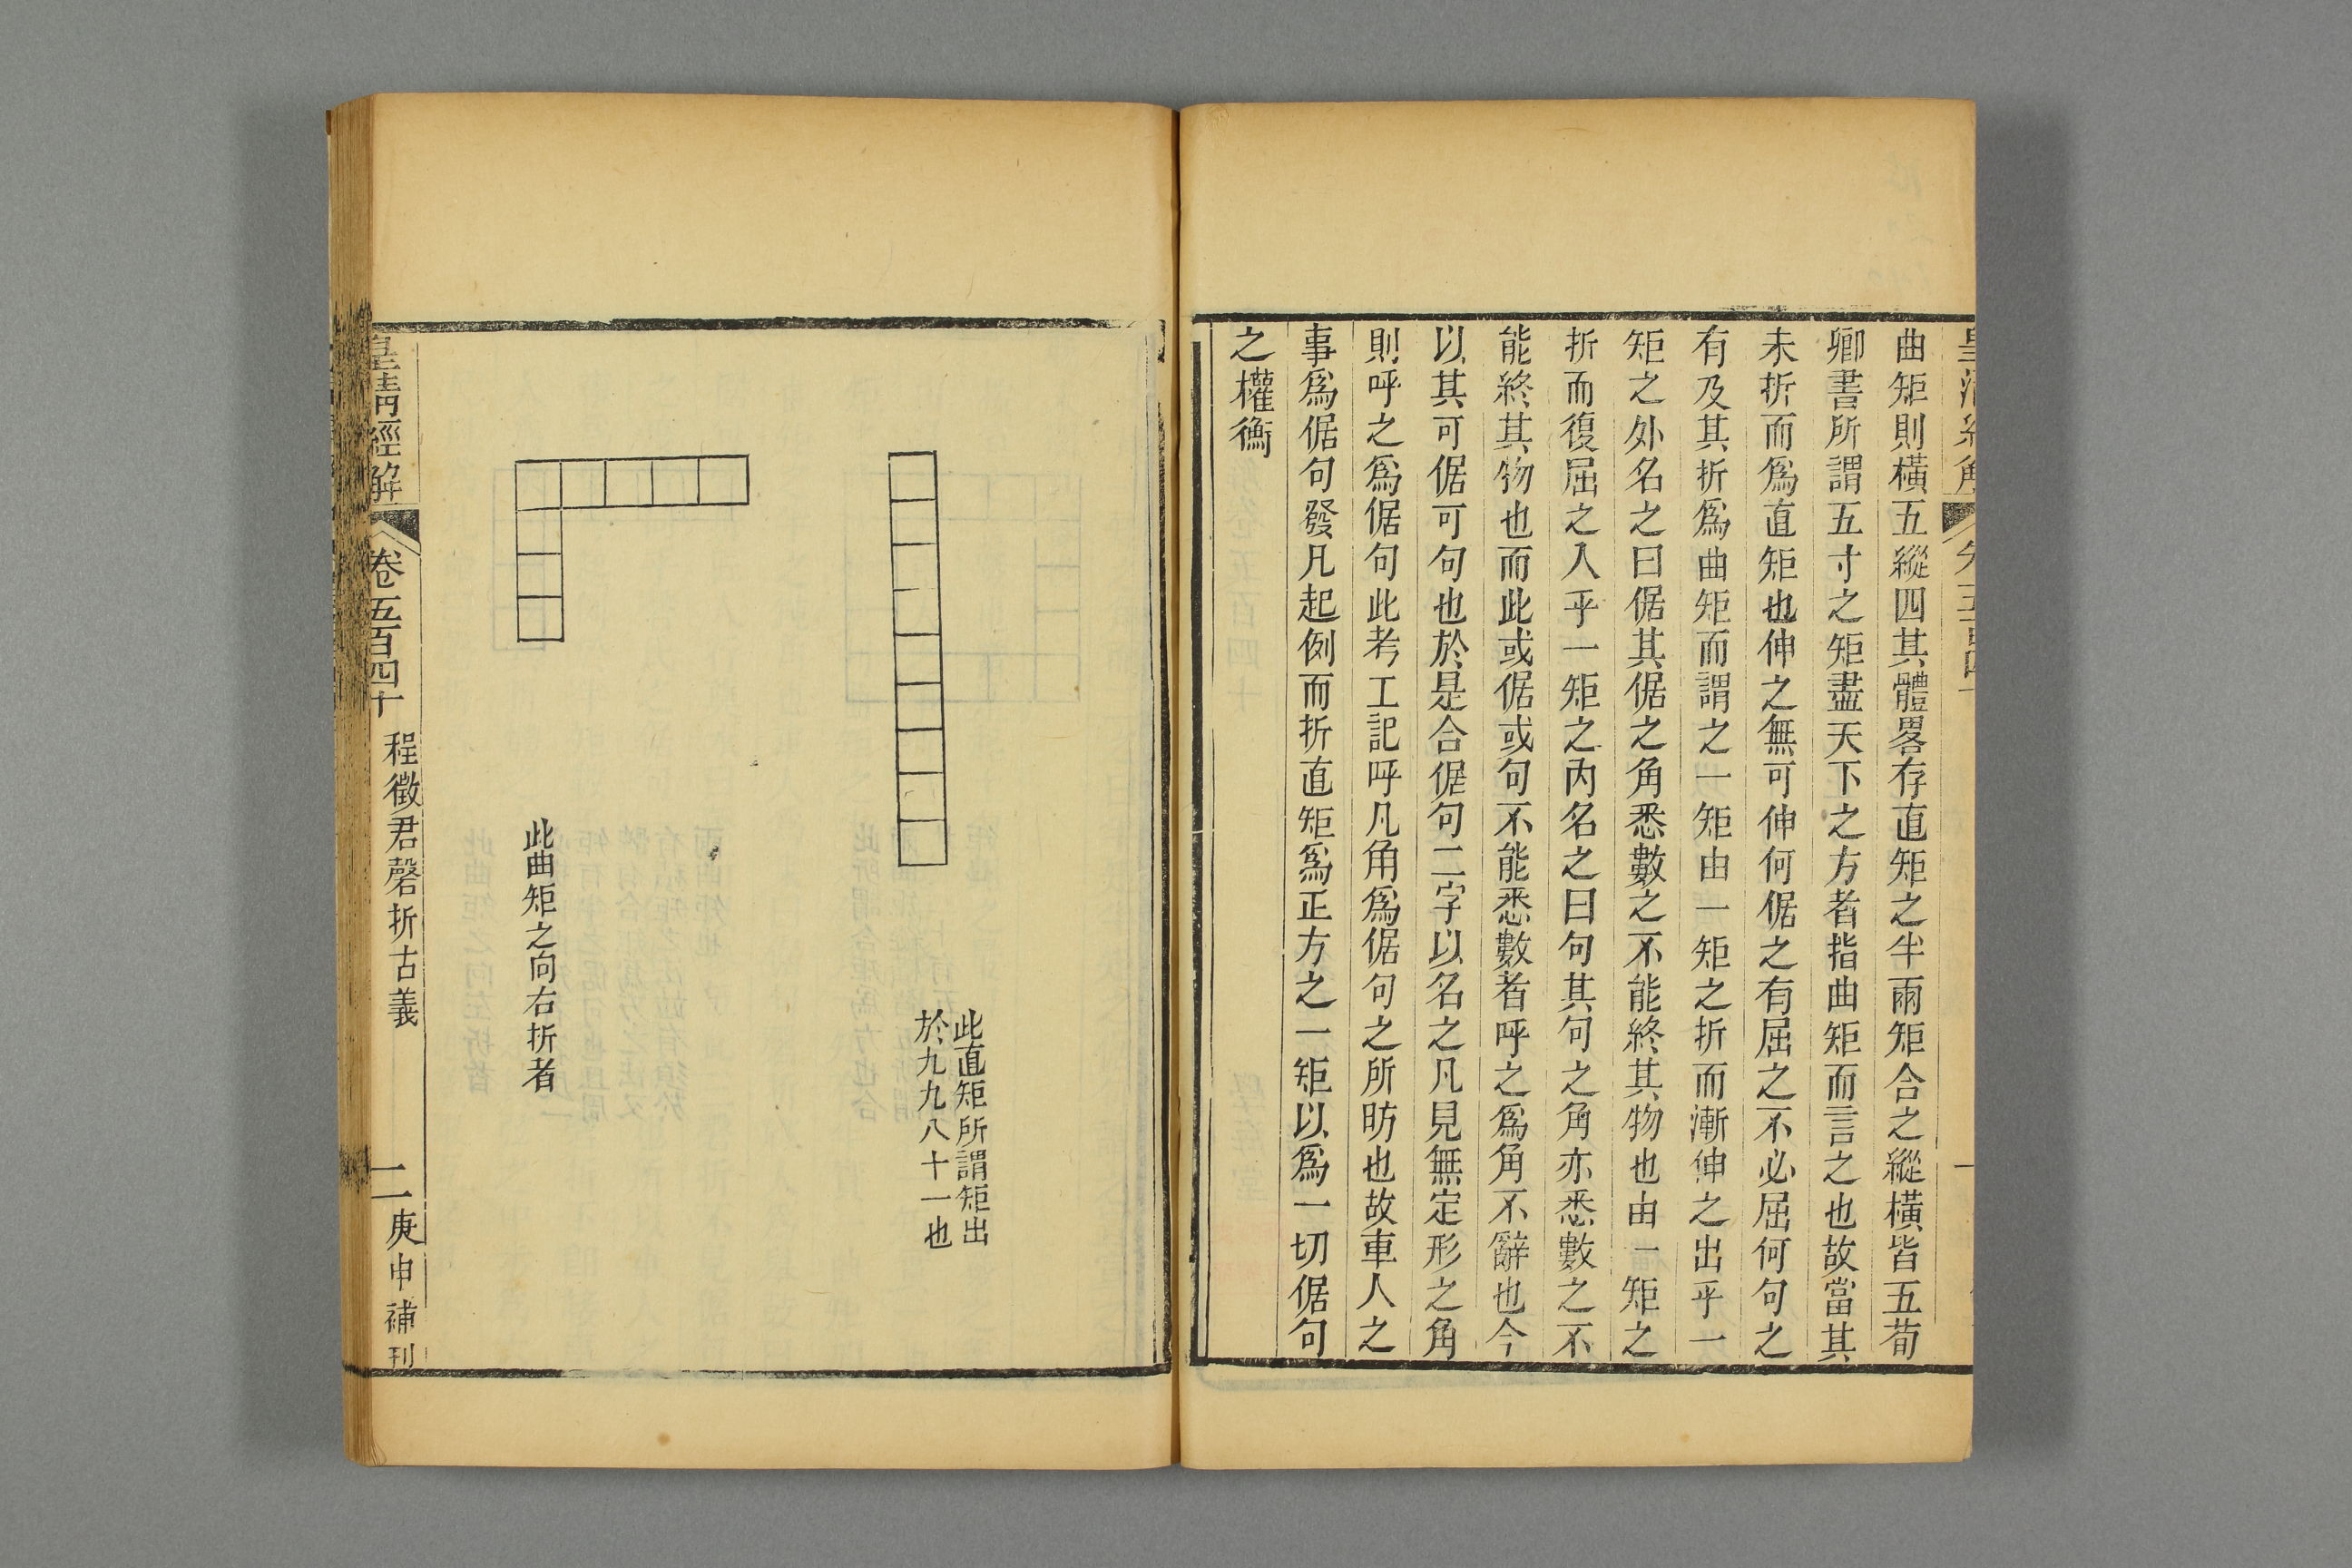 曲矩則橫五縱四其體畧存直矩之半兩矩合之縱橫皆五荀
卿書所謂五寸之矩盡天下之方者指曲矩而言之也故當其
未折而爲直矩也伸之無可伸何倨之有屈之不必屈何句之
有及其折爲曲矩而謂之一矩由一矩之折而漸伸之出乎一
矩之外名之曰倨其倨之角悉數之不能終其物也由一矩之
折而復屈之入乎一矩之內名之曰句其句之角亦悉數之不
能終其物也而此或倨或句不能悉數者呼之爲角不辭也今
以其可倨可句也於是合倨句二字以名之凡見無定形之角
則呼之爲倨句此考工記呼凡角爲倨句之所昉也故車人之
事爲倨句發凡起例而折直矩爲正方之一矩以爲一切倨句
之權衡
此直矩所謂矩出
於九九八十一也
此曲矩之向右折者
皇清經解
卷五百四十
程徵君磬折古義
二
庚申補刊